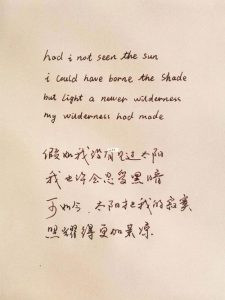 had i not seen the sun
i could have borne the shade
but light a newer wilderness
my wilderness had made
假如我没有见过太阳
我也许会忍受黑暗
可如今，太阳把我的寂寞
照耀得更加荒凉